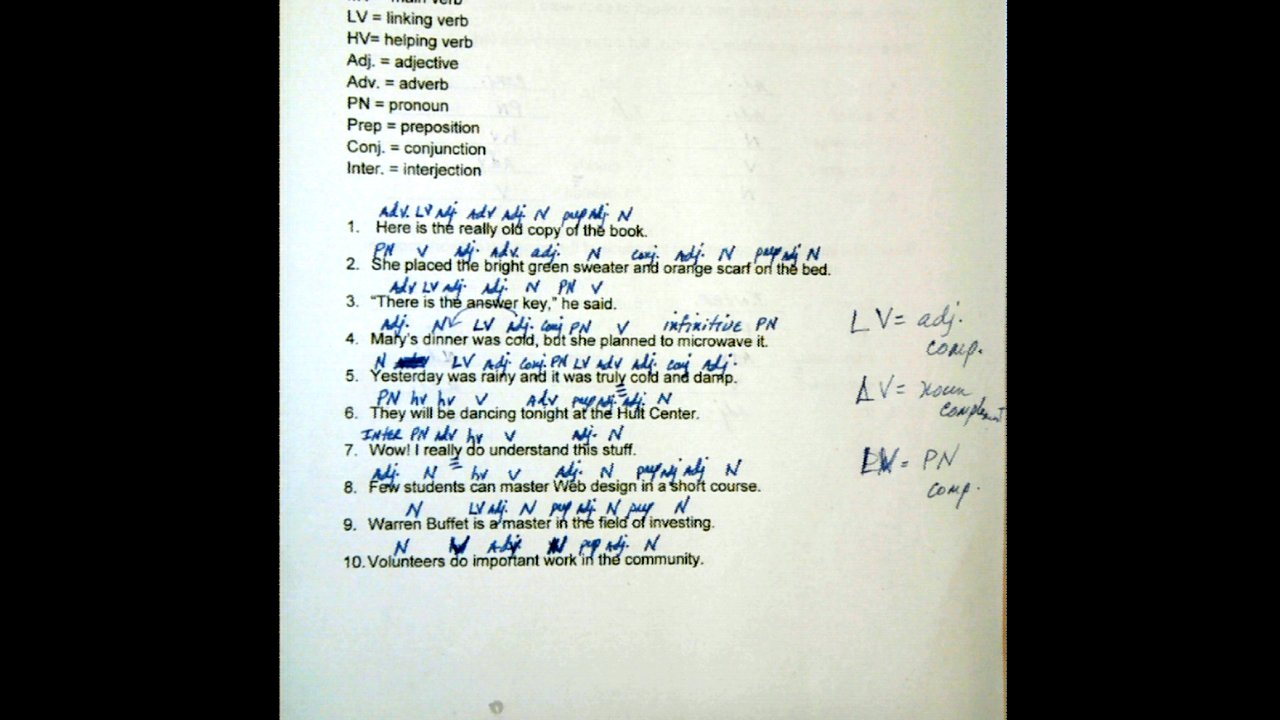 LV = linking verb
HV= helping verb
Adj. = adjective
Adv. = adverb
PN = pronoun
Prep = preposition
Conj. = conjunction
Inter. = interjection
Adv. LV Adj. Adv Adj. N prep Adj. N
1. Here is the really old copy of the book.
PN V Adj. Adv. adj. N conj. Adj. N prep adj N
2. She placed the bright green sweater and orange scarf on the bed.
Adv LV Adj. Adj. N PN V
3. “There is the answer key,” he said.
Adj. N LV Adj. conj PN V infinitive PN
4. Mary's dinner was cold, but she planned to microwave it.
N LV Adj. conj. PN LV Adv Adj. conj Adj.
5. Yesterday was rainy and it was truly cold and damp.
PN hv hv V Adv prep Adj. Adj. N
6. They will be dancing tonight at the Hult Center.
INTER PN adv hv V Adj. N
7. Wow! I really do understand this stuff.
Adj. N hv V Adj. N prep adj adj N
8. Few students can master Web design in a short course.
N LV Adj. N prep Adj. N prep N
9. Warren Buffet is a master in the field of investing.
N V Adj. N prep Adj. N
10. Volunteers do important work in the community.
LV= adj.
comp.
LV= noun
complement
LV= PN
comp.